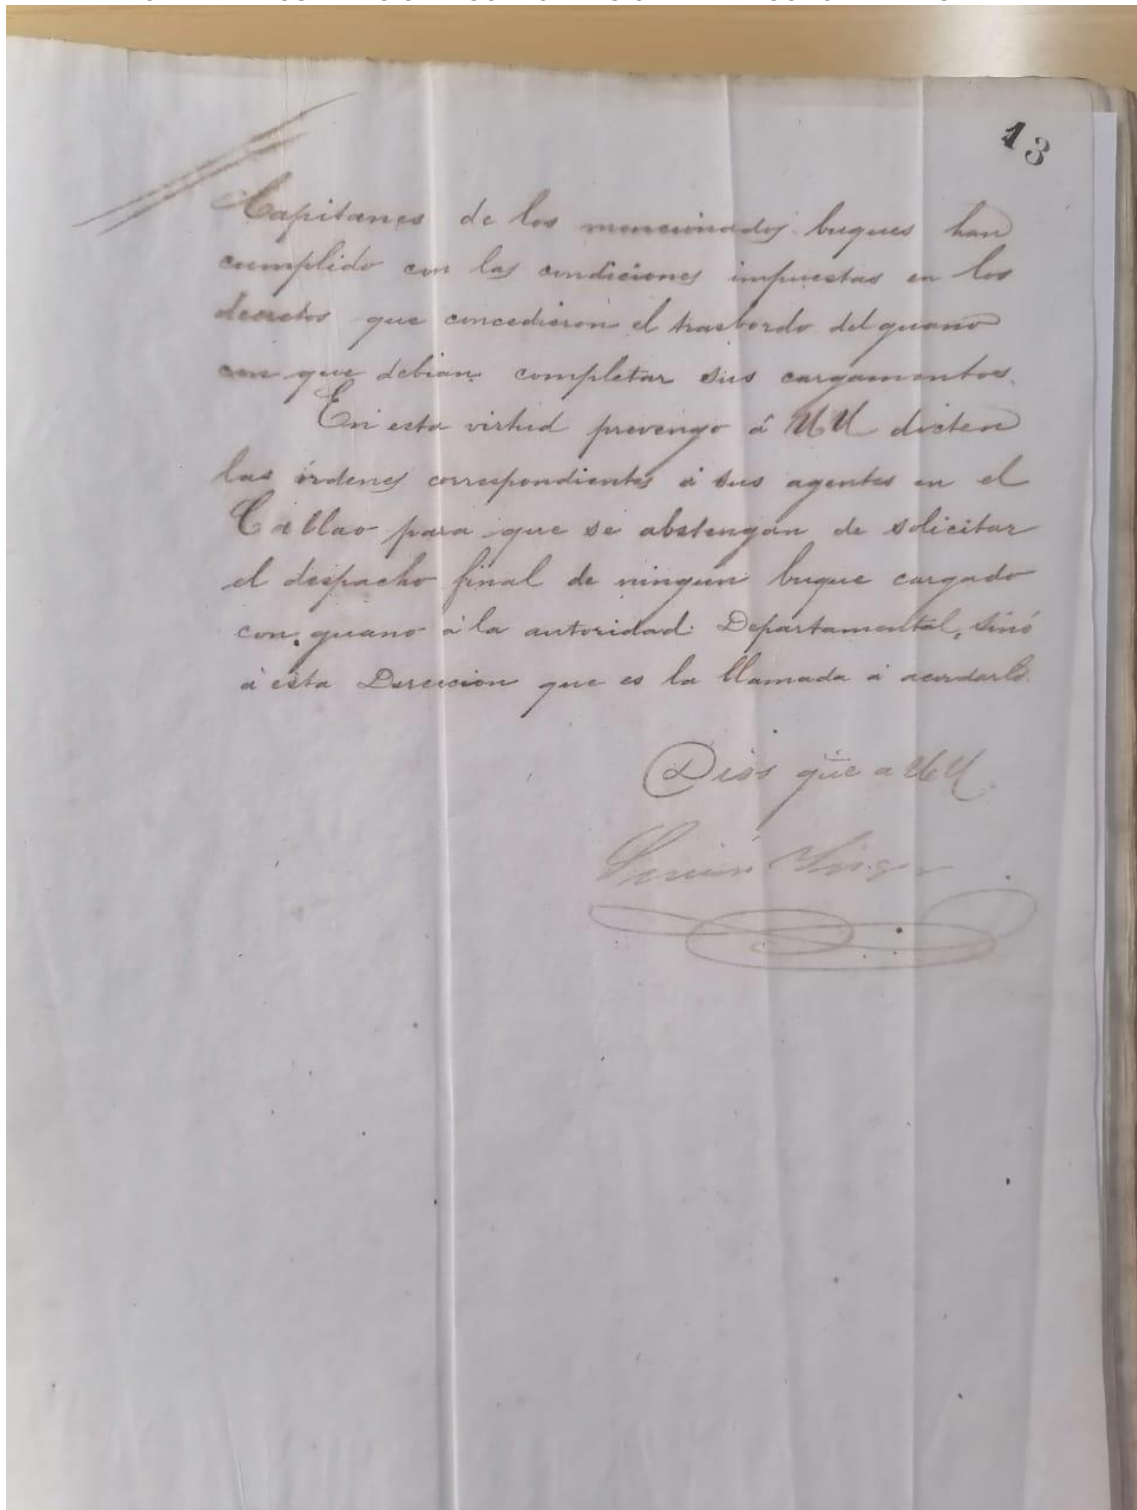 13
Capitanes de los mencionados buques han
cumplido con las condiciones impuestas en los
decretos que concedieron el trasbordo del guano
con que debian completar sus cargamentos.
En esta virtud prevengo á UU dicten
las órdenes correspondientes á sus agentes en el
Callao para que se abstengan de solicitar
el despacho final de ningun buque cargado
con guano á la autoridad Departamental, sinó
á esta Direccion que es la llamada á acordarlo.
Dios gūe a UU.